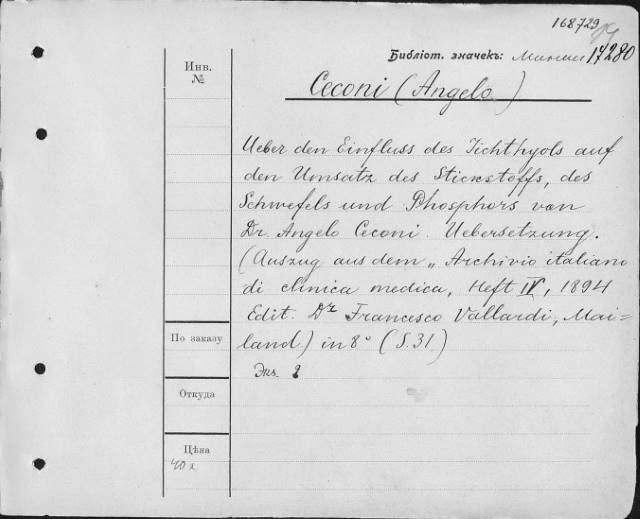 168729
Библіот. значекъ: 17280
Инв.
№
Ceconi (Angelo)
Ueber den Einfluss des Ichthyols auf
den Umsatz des Stickstoffs, des
Schwefels und Phosphors von
Dr. Angelo Ceconi. Uebersetzung.
(Auszug aus dem „Archivio italiano
di clinica medica, Heft IV, 1894
Edit. Dr Francesco Vallardi, Mai=
land.) in 8° (S. 31)
По заказу
Экз.
Откуда
Цѣна